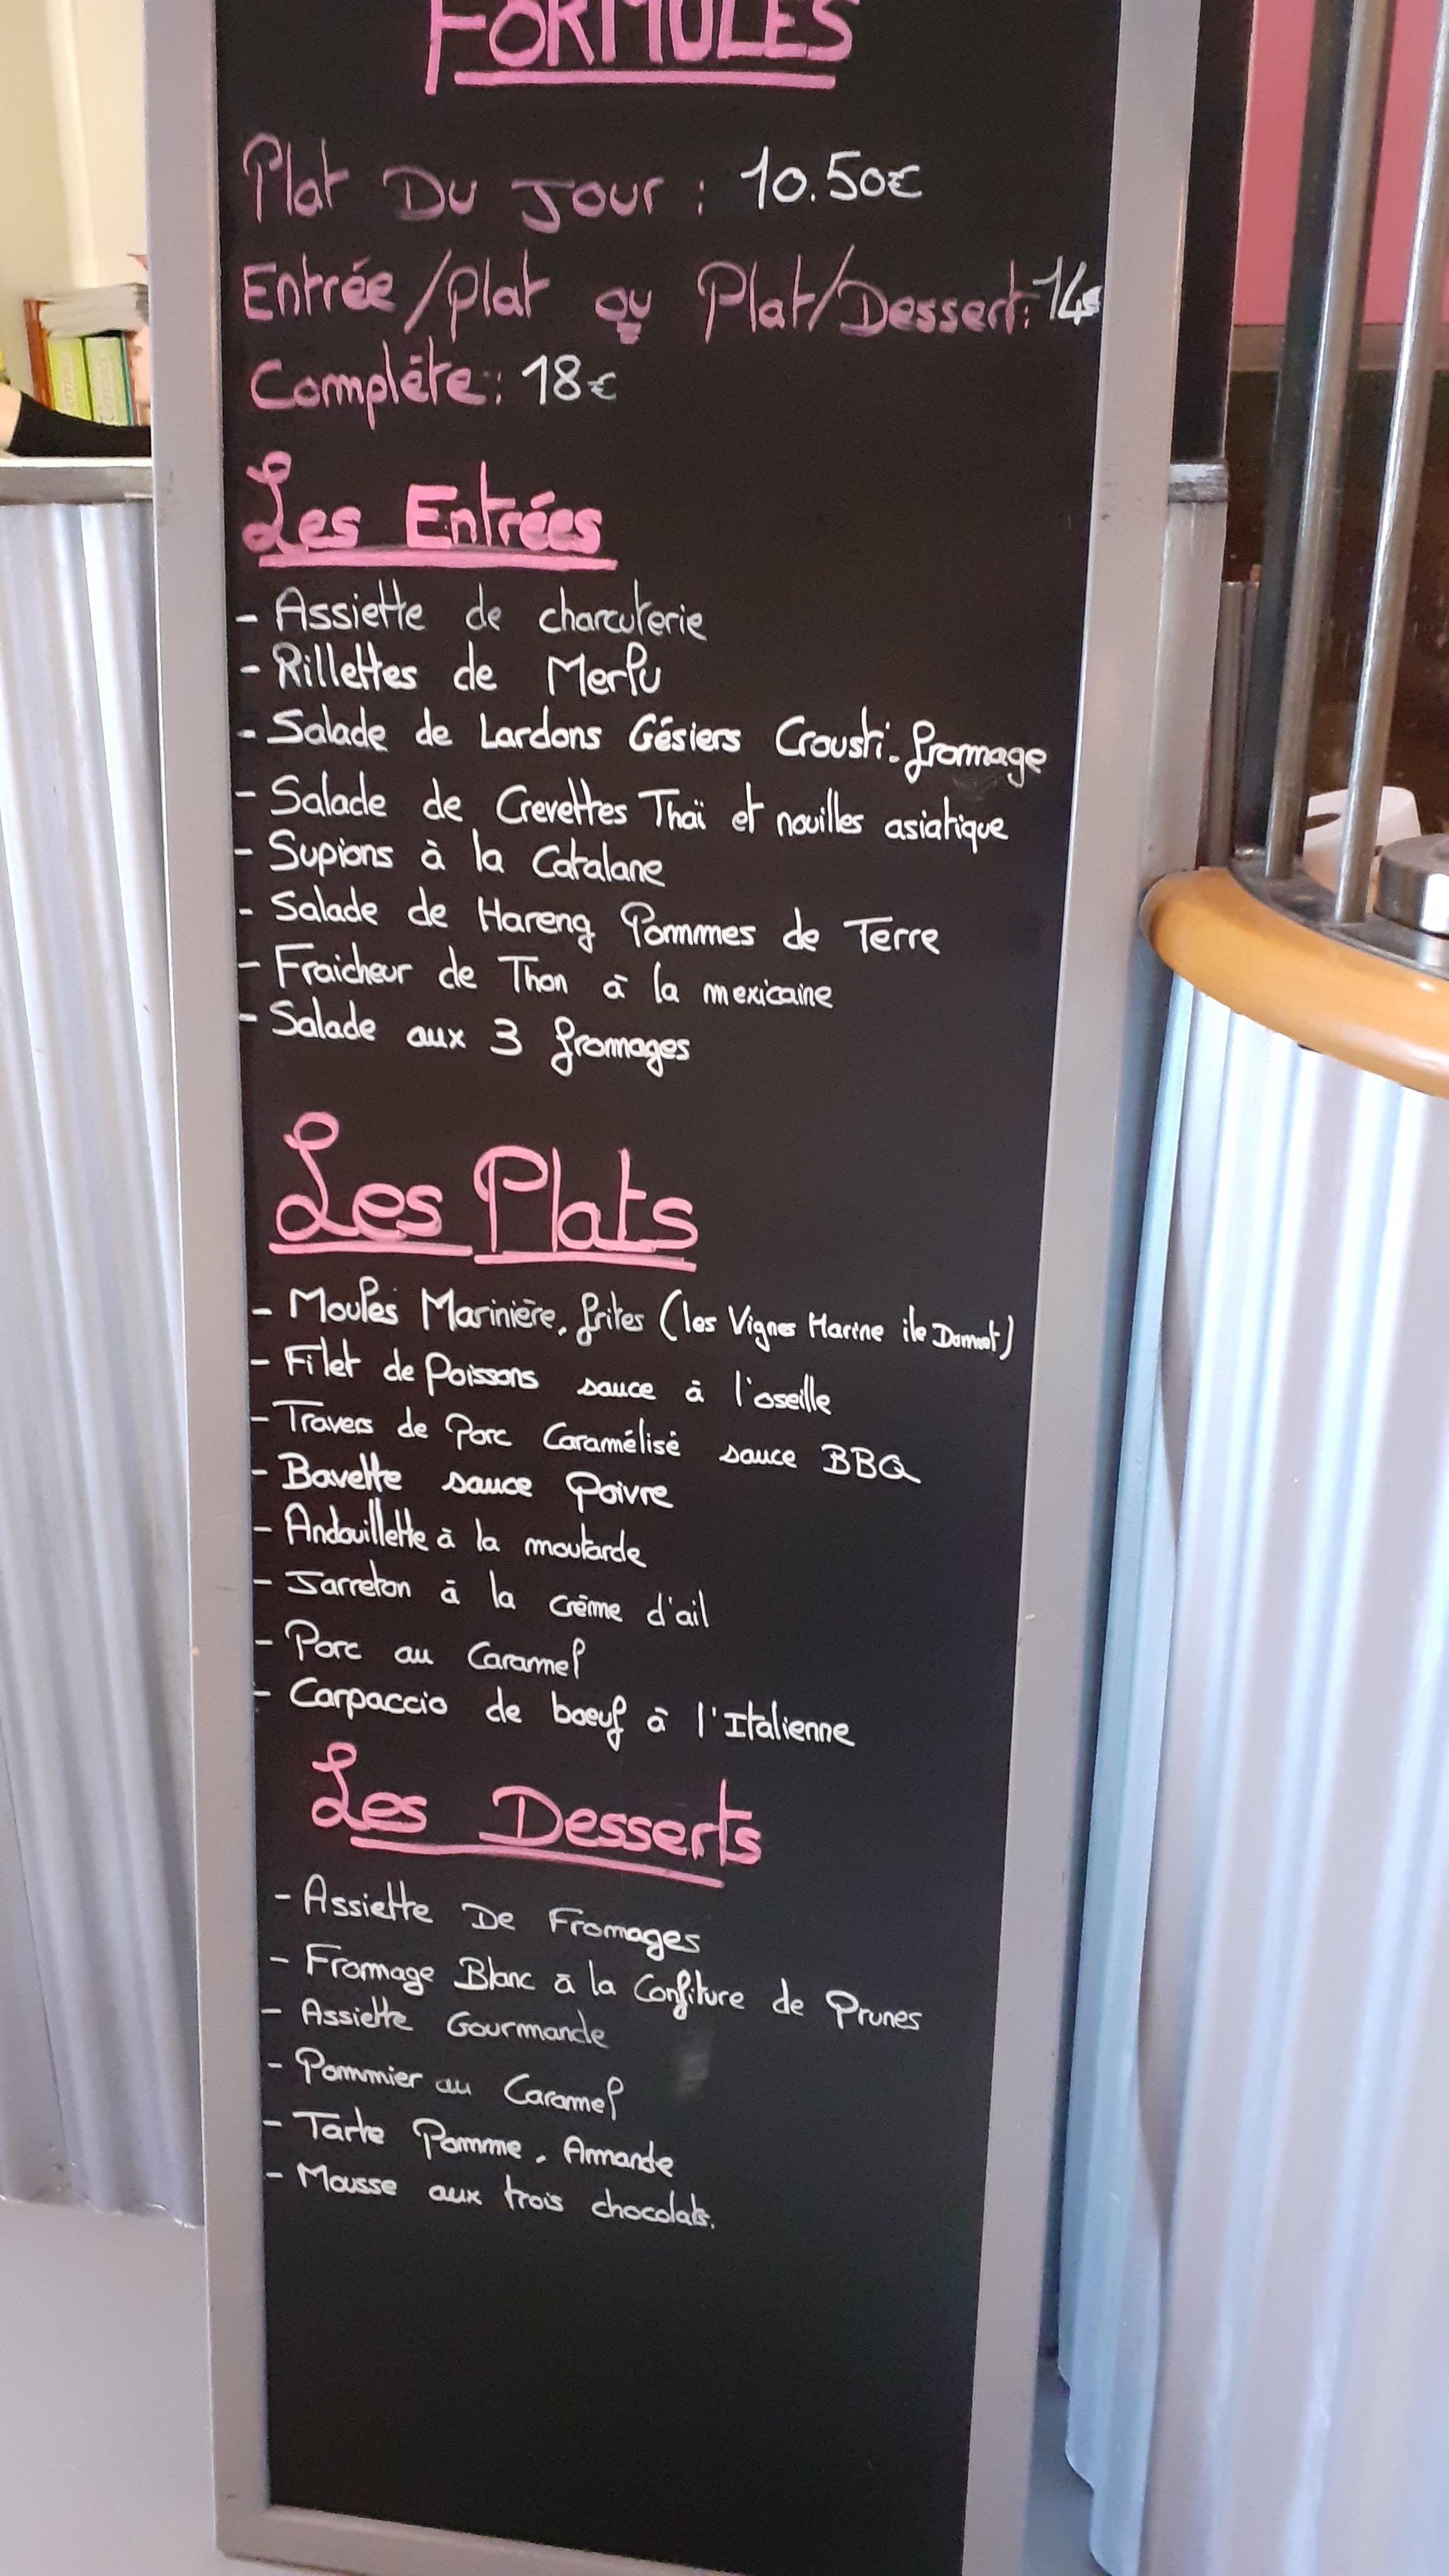 FORMULES
Plat Du Jour : 10.50€
Entrée/plat ou Plat/Dessert: 14€
Complète: 18€
Les Entrées
- Assiette de charcuterie
- Rillettes de Merlu
- Salade de Lardons Gésiers Crousti-fromage
- Salade de Crevettes Thaï et nouilles asiatique
- Supions à la Catalane
- Salade de Hareng Pommes de Terre
- Fraicheur de Thon à la mexicaine
- Salade aux 3 fromages
Les Plats
- Moules Marinière, frites (les Vignes Marine ile Dumet)
- Filet de Poissons sauce à l'oseille
- Travers de Porc Caramélisé sauce BBQ
- Bavette sauce Poivre
- Andouillette à la moutarde
- Jarreton à la crème d'ail
- Porc au Caramel
- Carpaccio de boeuf à l'Italienne
Les Desserts
- Assiette De Fromages
- Fromage Blanc à la Confiture de Prunes
- Assiette Gourmande
- Pommier au Caramel
- Tarte Pomme, Amande
- Mousse aux trois chocolats.